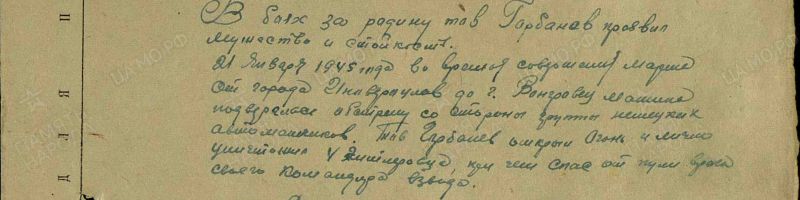 В боях за радину тав Горбанев проявил
мужество и стойкость.
21 Января 1945 года во время совершения марша
от города до г. Вонгровец машина
подверглась обстрелу со стороны группы немецких
автоматчиков. Тав Горбанев открыл Огонь и лично
уничтожил 4 Гитлеровца, при чем спас от пули врага
своего командира взвода.
П
Я
Л
Д